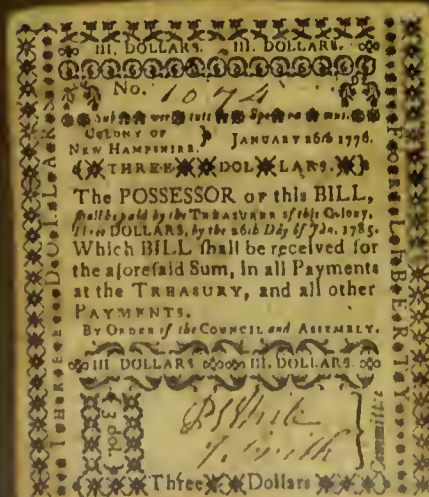 III. DOLLARS. III. DOLLARS.
No. 1074
COLONY OF
NEW HAMPSHIRE. } JANUARY 26th 1776.
THREE DOLLARS.
The POSSESSOR OF this BILL,
shall be paid by the TREASURER of this Colony,
Three DOLLARS, by the 26th Day of Jan. 1785.
Which BILL shall be received for
the aforesaid Sum, in all Payments
at the TREASURY, and all other
PAYMENTS.
BY ORDER of the COUNCIL and ASSEMBLY.
III DOLLARS III. DOLLARS.
3 dol.
Smith
Committee.
Three Dollars
THREE DOLLARS
FOR LIBERTY